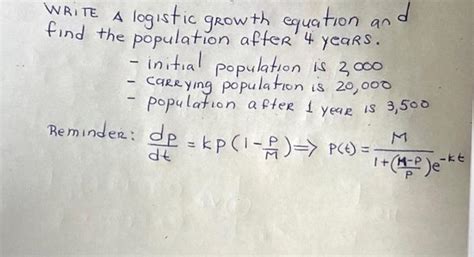 WRITE A logistic growth equation and
find the population after 4 years.
- initial population is 2,000
- carrying population is 20,000
- population after 1 year is 3,500
Reminder: dp/dt = kp(1-P/M) => P(t) = M/(1+((M-P)/P)e^-kt)